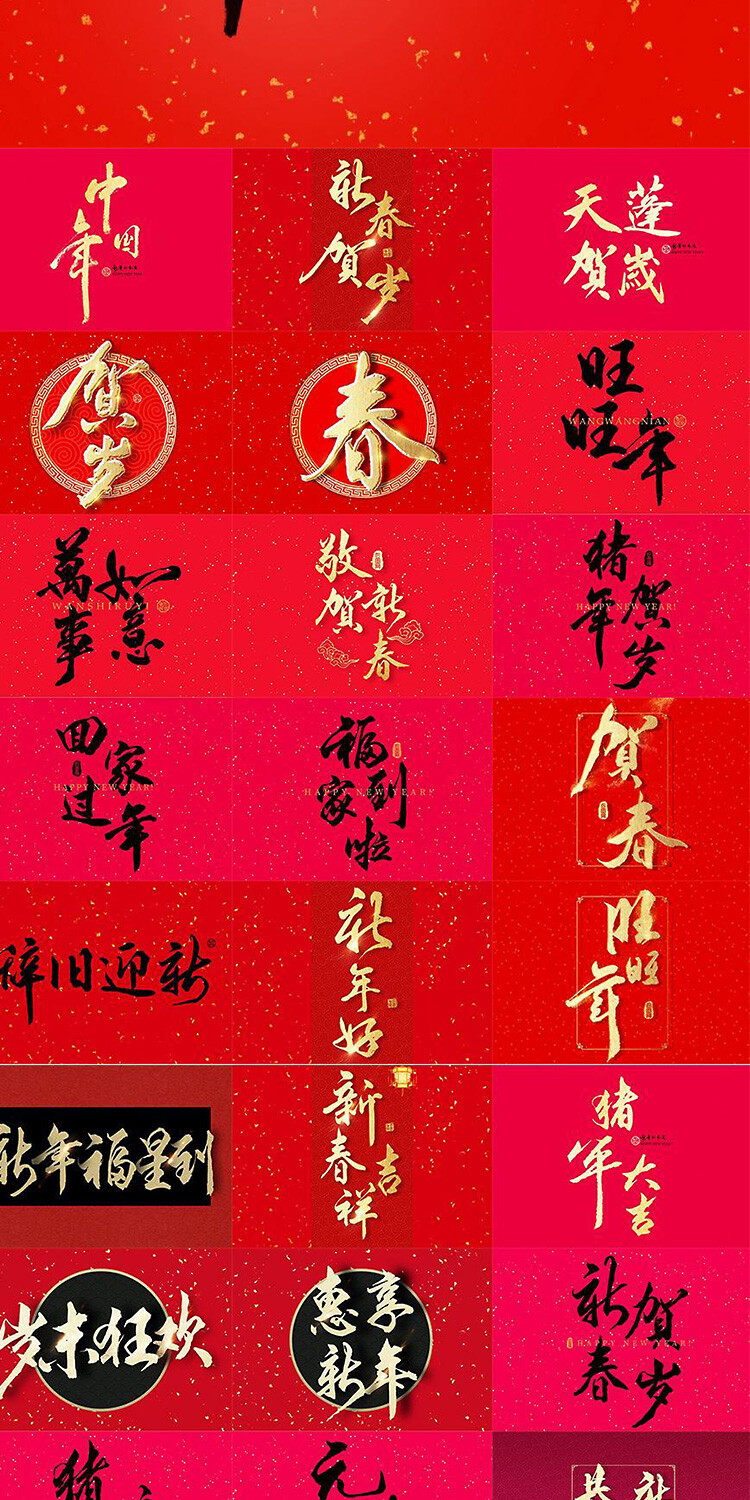 中国年
新春贺岁
天蓬
贺歲
贺岁
春
旺旺年
WANGWANGNIAN
萬事如意
WANSHIRUYI
敬贺新春
猪年贺岁
HAPPY NEW YEAR!
回家过年
HAPPY NEW YEAR!
福到家啦
HAPPY NEW YEAR!
贺春
辞旧迎新
新年好
旺旺年
新年福星到
新春吉祥
猪年大吉
岁末狂欢
惠享新年
新春贺岁
HAPPY NEW YEAR!
猪
元
恭
新